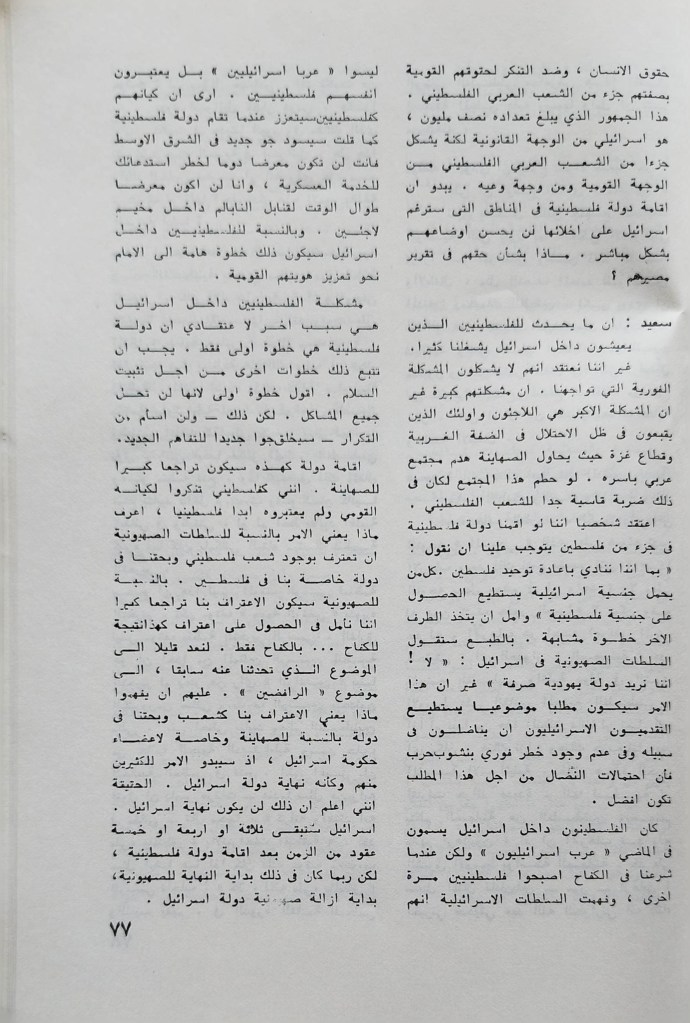 حقوق الانسان ، وضد التنكر لحقوقهم القومية
بصفتهم جزء من الشعب العربي الفلسطيني .
هذا الجمهور الذي يبلغ تعداده نصف مليون ،
هو اسرائيلي من الوجهة القانونية لكنة يشكل
جزءا من الشعب العربي الفلسطيني من
الوجهة القومية ومن وجهة وعيه . يبدو ان
اقامة دولة فلسطينية فى المناطق التى سترغم
اسرائيل على اخلائها لن يحسن اوضاعهم
بشكل مباشر . ماذا بشأن حقهم فى تقرير
مصيرهم ؟
سعيد : ان ما يحدث للفلسطينيين الذين
يعيشون داخل اسرائيل يشغلنا كثيرا.
غير اننا نعتقد انهم لا يشكلون المشكلة
الفورية التي تواجهنا . ان مشكلتهم كبيرة غير
ان المشكلة الاكبر هي اللاجئون واولئك الذين
يقبعون فى ظل الاحتلال فى الضفة الغربية
وقطاع غزة حيث يحاول الصهاينة هدم مجتمع
عربي باسره . لو حطم هذا المجتمع لكان فى
ذلك ضربة قاسية جدا للشعب الفلسطيني .
اعتقد شخصيا اننا لو اقمنا دولة فلسطينية
فى جزء من فلسطين يتوجب علينا ان نقول :
« بما اننا ننادي باعادة توحيد فلسطين .كل من
يحمل جنسية اسرائيلية يستطيع الحصول
على جنسية فلسطينية » وامل ان يتخذ الطرف
الاخر خطوة مشابهة . بالطبع ستقول
السلطات الصهيونية فى اسرائيل : « لا !
اننا نريد دولة يهودية صرفة » غير ان هذا
الامر سيكون مطلبا موضوعيا يستطيع
التقدميون الاسرائيليون ان يناضلون فى
سبيله وفى عدم وجود خطر فوري بنشوب حرب
فأن احتمالات النضال من اجل هذا المطلب
تكون افضل .
كان الفلسطينون داخل اسرائيل يسمون
فى الماضي « عرب اسرائيليون » ولكن عندما
شرعنا فى الكفاح اصبحوا فلسطينيين مرة
اخرى ، وفهمت السلطات الاسرائيلية انهم
ليسوا « عربا اسرائيليين » بل يعتبرون
انفسهم فلسطينيين . ارى ان كيانهم
كفلسطينيين سيتعزز عندما تقام دولة فلسطينية
كما قلت سيسود جو جديد فى الشرق الاوسط
فانت لن تكون معرضا دوما لخطر استدعائك
للخدمة العسكرية ، وانا لن اكون معرضا
طوال الوقت لقنابل النابالم داخل مخيم
لاجئين . وبالنسبة للفلسطينيين داخل
اسرائيل سيكون ذلك خطوة هامة الى الامام
نحو تعزيز هويتهم القومية .
مشكلة الفلسطينيين داخل اسرائيل
هي سبب اخر لا عتقادي ان دولة
فلسطينية هي خطوة اولى فقط . يجب ان
تتبع ذلك خطوات اخرى من اجل تثبيت
السلام . اقول خطوة اولى لانها لن تحل
جميع المشاكل . لكن ذلك ــ ولن اسأم من
التكرار ــ سيخلق جوا جديدا للتفاهم الجديد.
اقامة دولة كهذه سيكون تراجعا كبيرا
للصهاينة . انني كفلسطيني تنكروا لكيانه
القومي ولم يعتبروه ابدا فلسطينيا ، اعرف
ماذا يعني الامر بالنسبة للسلطات الصهيونية
ان تعترف بوجود شعب فلسطيني وبحقنا فى
دولة خاصة بنا فى فلسطين . بالنسبة
للصهيونية سيكون الاعتراف بنا تراجعا كبيرا
اننا نأمل فى الحصول على اعتراف كهذا نتيجة
للكفاح ... بالكفاح فقط . لنعد قليلا الى
الموضوع الذي تحدثنا عنه سابقا ، الى
موضوع « الرافضين » . عليهم ان يفهموا
ماذا يعني الاعتراف بنا كشعب وبحقنا فى
دولة بالنسبة للصهاينة وخاصة لاعضاء
حكومة اسرائيل ، اذ سيبدو الامر للكثيرين
منهم وكأنه نهاية دولة اسرائيل . الحقيقة
انني اعلم ان ذلك لن يكون نهاية اسرائيل .
اسرائيل ستبقى ثلاثة او اربعة او خمسة
عقود من الزمن بعد اقامة دولة فلسطينية ،
لكن ربما كان فى ذلك بداية النهاية للصهيونية،
بداية ازالة صهيونية دولة اسرائيل .
٧٧